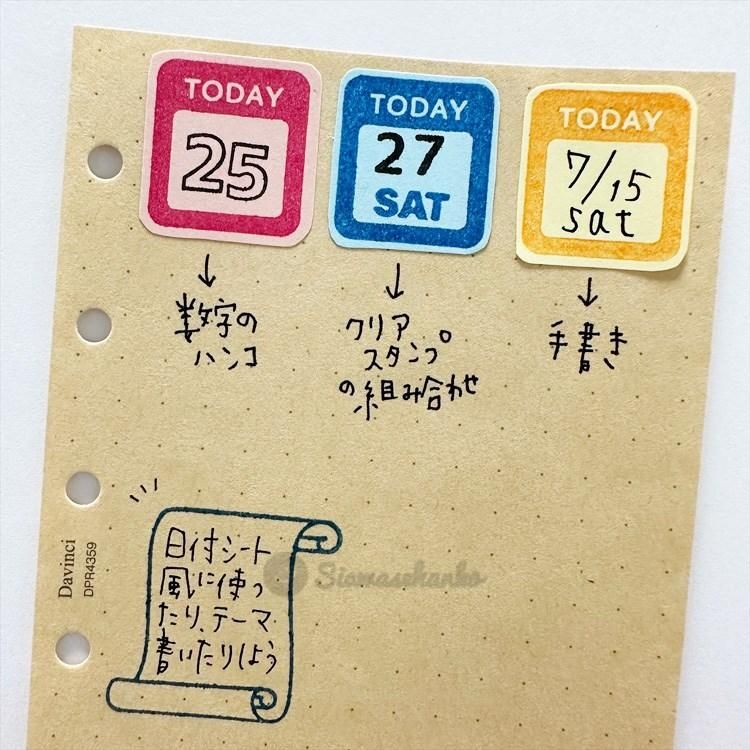 TODAY
25
TODAY
27
SAT
TODAY
7/15
sat
↓
数字の
ハンコ
↓
クリア
スタンプ
の組み合わせ
↓
手書き
日付シート
風に使っ
たり、テーマ
書いたりしよう
Siawasehanko
Davinci
DPR4359